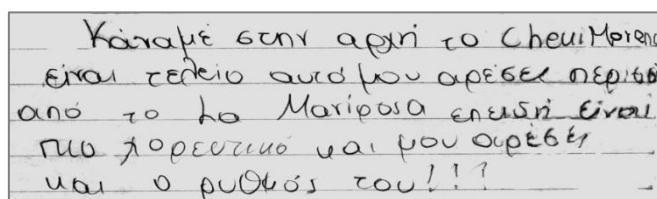 Κάναμε στην αρχή το Cheui Moreno
είναι τελειο αυτό μου αρέσει περισσ
από το La Mariposa επειδή είναι
πιο χορευτικό και μου αρέσει
και ο ρυθμός του!!!